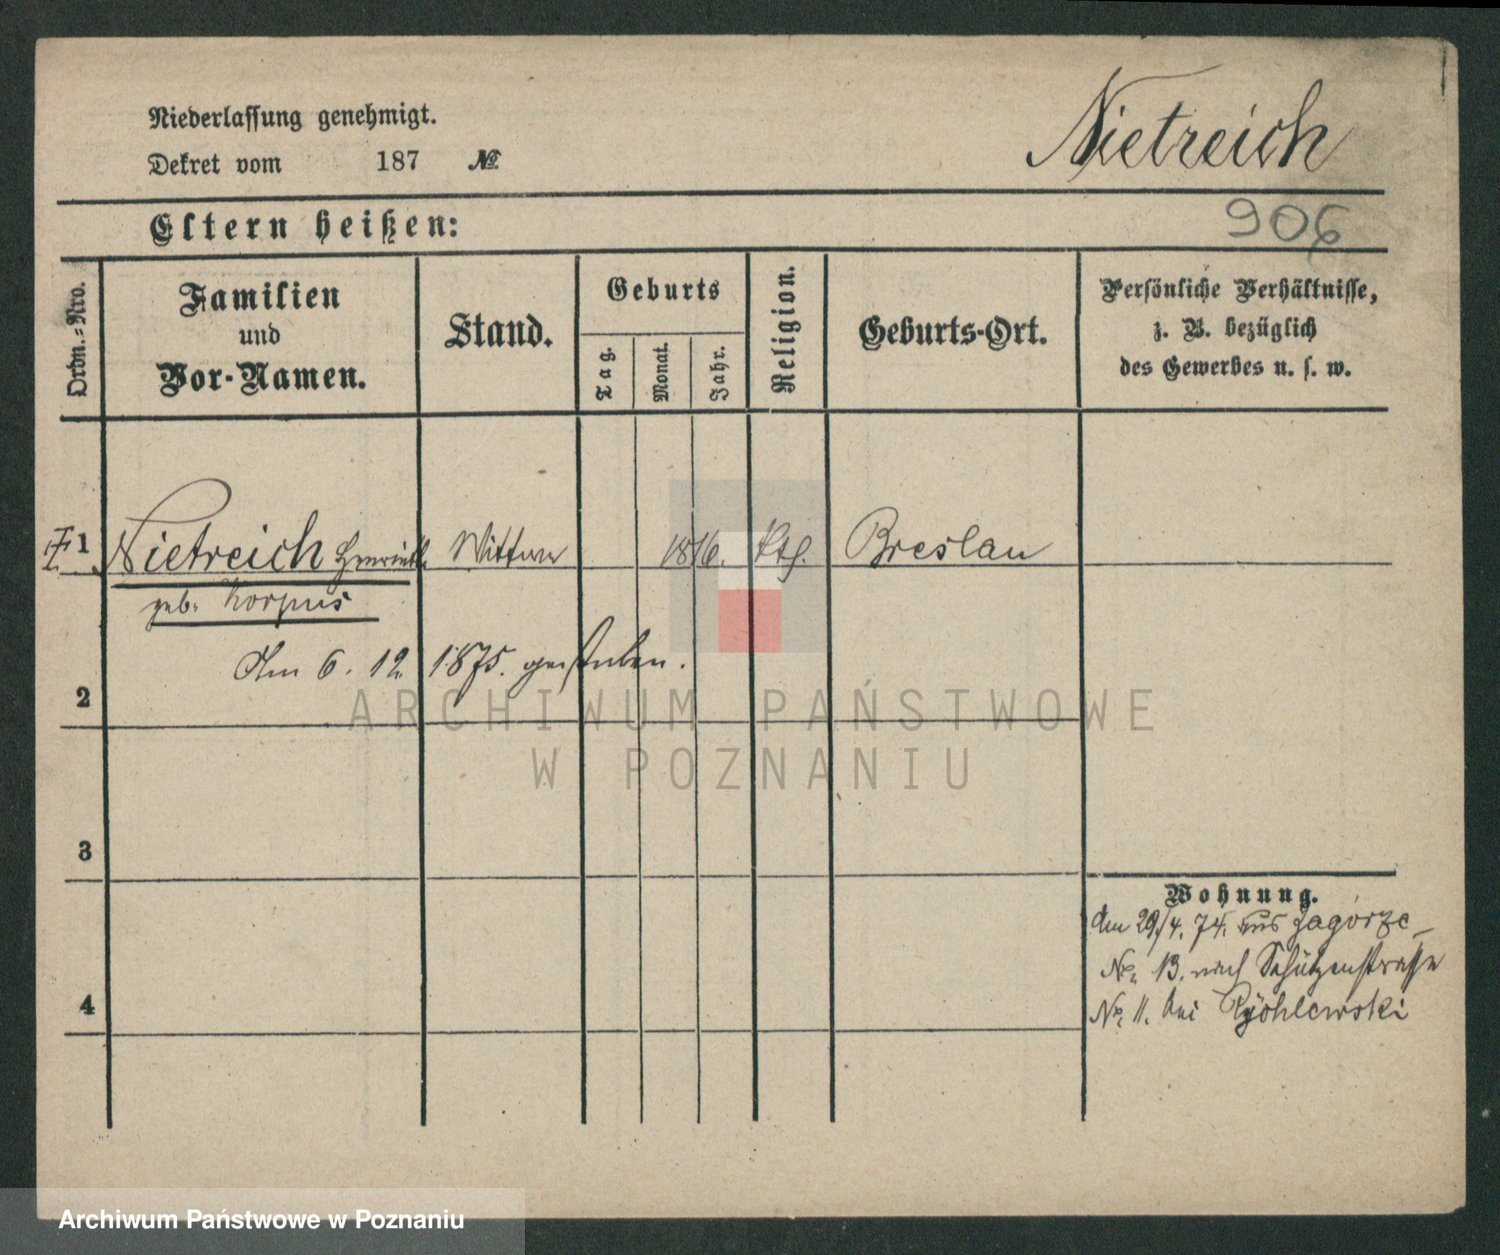 Niederlassung genehmigt.
Dekret vom 187 №
Nietreich
Eltern heißen:
906
Ordn.-Nro.
Familien
und
Vor-Namen.
Stand.
Geburts
Tag.
Monat.
Jahr.
Religion.
Geburts-Ort.
Persönliche Verhältnisse,
z. B. bezüglich
des Gewerbes u. s. w.
1 Nietreich Henriette Wittwe 1816. kth. Breslau
geb. Korpus
Am 6. 12. 1875. gestorben.
2
3
4
Wohnung.
Am 29/4. 74. aus Zagórze
No. 13. nach Schützenstrasse
No. 11. bei
ARCHIWUM PAŃSTWOWE
W POZNANIU
Archiwum Państwowe w Poznaniu